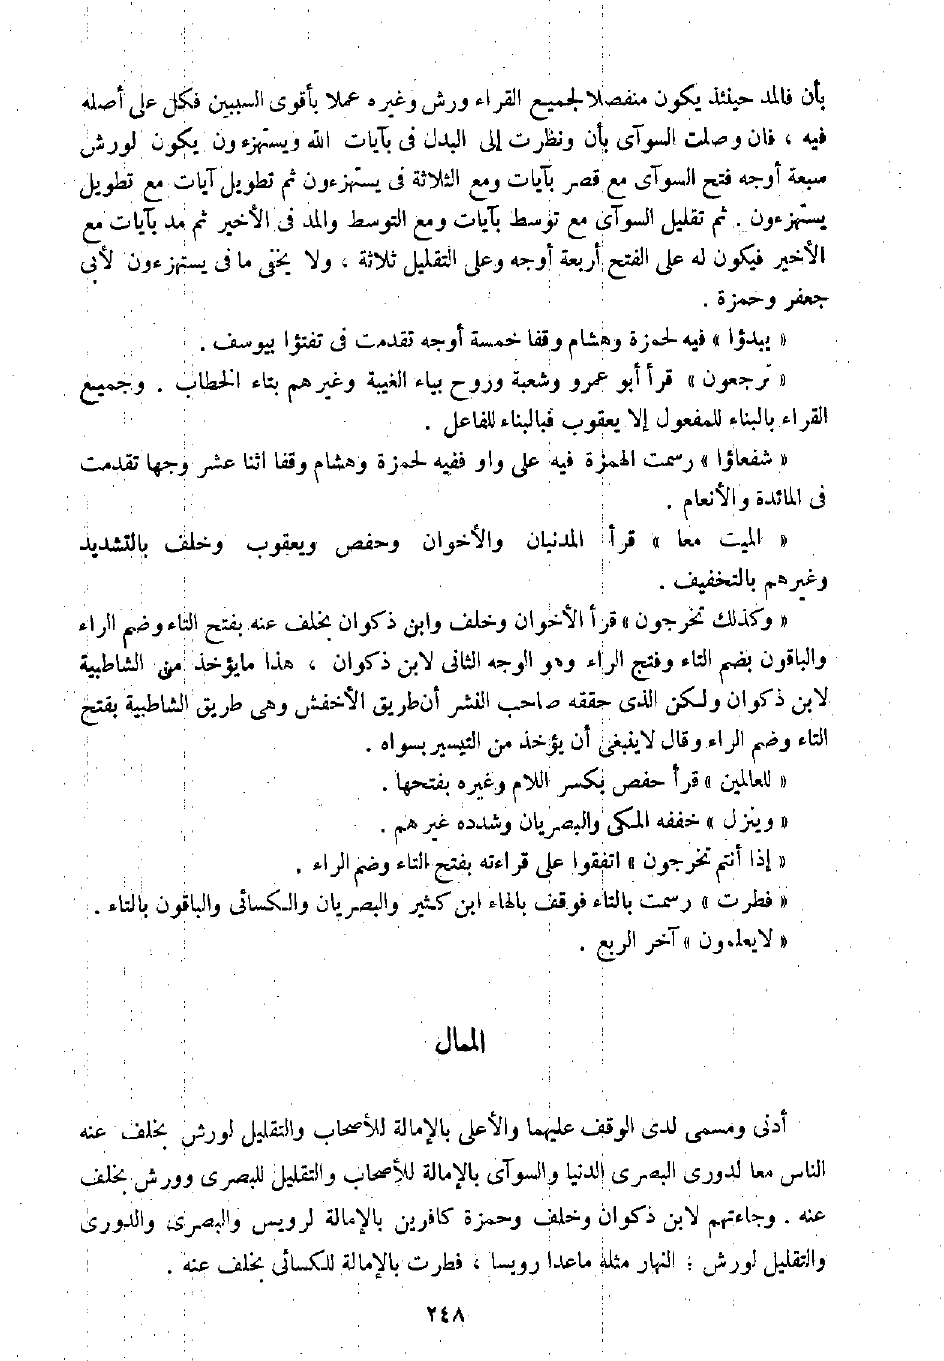 بأن فالمد حينئذ يكون منفصلا لجميع القراء ورش وغيره عملا بأقوى السببين فكل على أصله
فيه ، فان وصلت السوآى بأن ونظرت إلى البدل فى بآيات الله ويستهزءون يكون لورش
سبعة أوجه فتح السوآى مع قصر بآيات ومع الثلاثة فى يستهزءون ثم تطويل آيات مع تطويل
يستهزءون . ثم تقليل السوآى مع توسط بآيات ومع التوسط والمد فى الأخير ثم مد بآيات مع
الأخير فيكون له على الفتح أربعة أوجه وعلى التقليل ثلاثة ، ولا يخفى ما فى يستهزءون لأبى
جعفر وحمزة .
« يبدؤا » فيه لحمزة وهشام وقفا خمسة أوجه تقدمت فى تفتؤا بيوسف .
« ترجعون » قرأ أبو عمرو وشعبة وروح بياء الغيبة وغيرهم بتاء الخطاب . وجميع
القراء بالبناء للمفعول إلا يعقوب فبالبناء للفاعل .
« شفعاؤا » رسمت الهمزة فيه على واو ففيه لحمزة وهشام وقفا اثنا عشر وجها تقدمت
فى المائدة والأنعام .
« الميت معا » قرأ المدنيان والأخوان وحفص ويعقوب وخلف بالتشديد
وغيرهم بالتخفيف .
« وكذلك تخرجون » قرأ الأخوان وخلف وابن ذكوان بخلف عنه بفتح التاء وضم الراء
والباقون بضم التاء وفتح الراء وهو الوجه الثانى لابن ذكوان ، هذا مايؤخذ من الشاطبية
لابن ذكوان ولكن الذى حققه صاحب النشر أن طريق الأخفش وهى طريق الشاطبية بفتح
التاء وضم الراء وقال لاينبغى أن يؤخذ من التيسير بسواه .
« للعالمين » قرأ حفص بكسر اللام وغيره بفتحها .
« وينزل » خففه المكى والبصريان وشدده غيرهم .
« إذا أنتم تخرجون » اتفقوا على قراءته بفتح التاء وضم الراء .
« فطرت » رسمت بالتاء فوقف بالهاء ابن كثير والبصريان والكسائى والباقون بالتاء .
« لايعلمون » آخر الربع .
الممال
أدنى ومسمى لدى الوقف عليهما والأعلى بالإمالة للأصحاب والتقليل لورش بخلف عنه
الناس معا لدورى البصرى الدنيا والسوآى بالإمالة للأصحاب والتقليل للبصرى وورش بخلف
عنه . وجاءتهم لابن ذكوان وخلف وحمزة كافرين بالإمالة لرويس والبصرى والدورى
والتقليل لورش : النهار مثله ماعدا رويسا ، فطرت بالإمالة للكسائى بخلف عنه .
٢٤٨